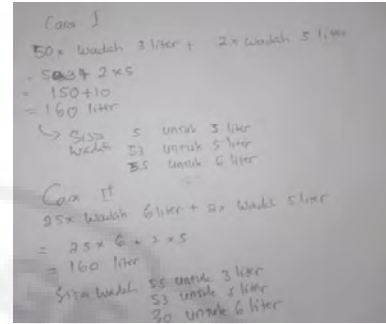 Cara I
50 x wadah 3 liter + 2 x wadah 5 liter
= 50 3 + 2 x 5
= 150 + 10
= 160 liter
Sisa 5 untuk 3 liter
wadah 53 untuk 5 liter
55 untuk 6 liter
Cara II
25 x wadah 6 liter + 2x wadah 5 liter
= 25 x 6 + 2 x 5
= 160 liter
Sisa wadah 55 untuk 3 liter
53 untuk 5 liter
30 untuk 6 liter